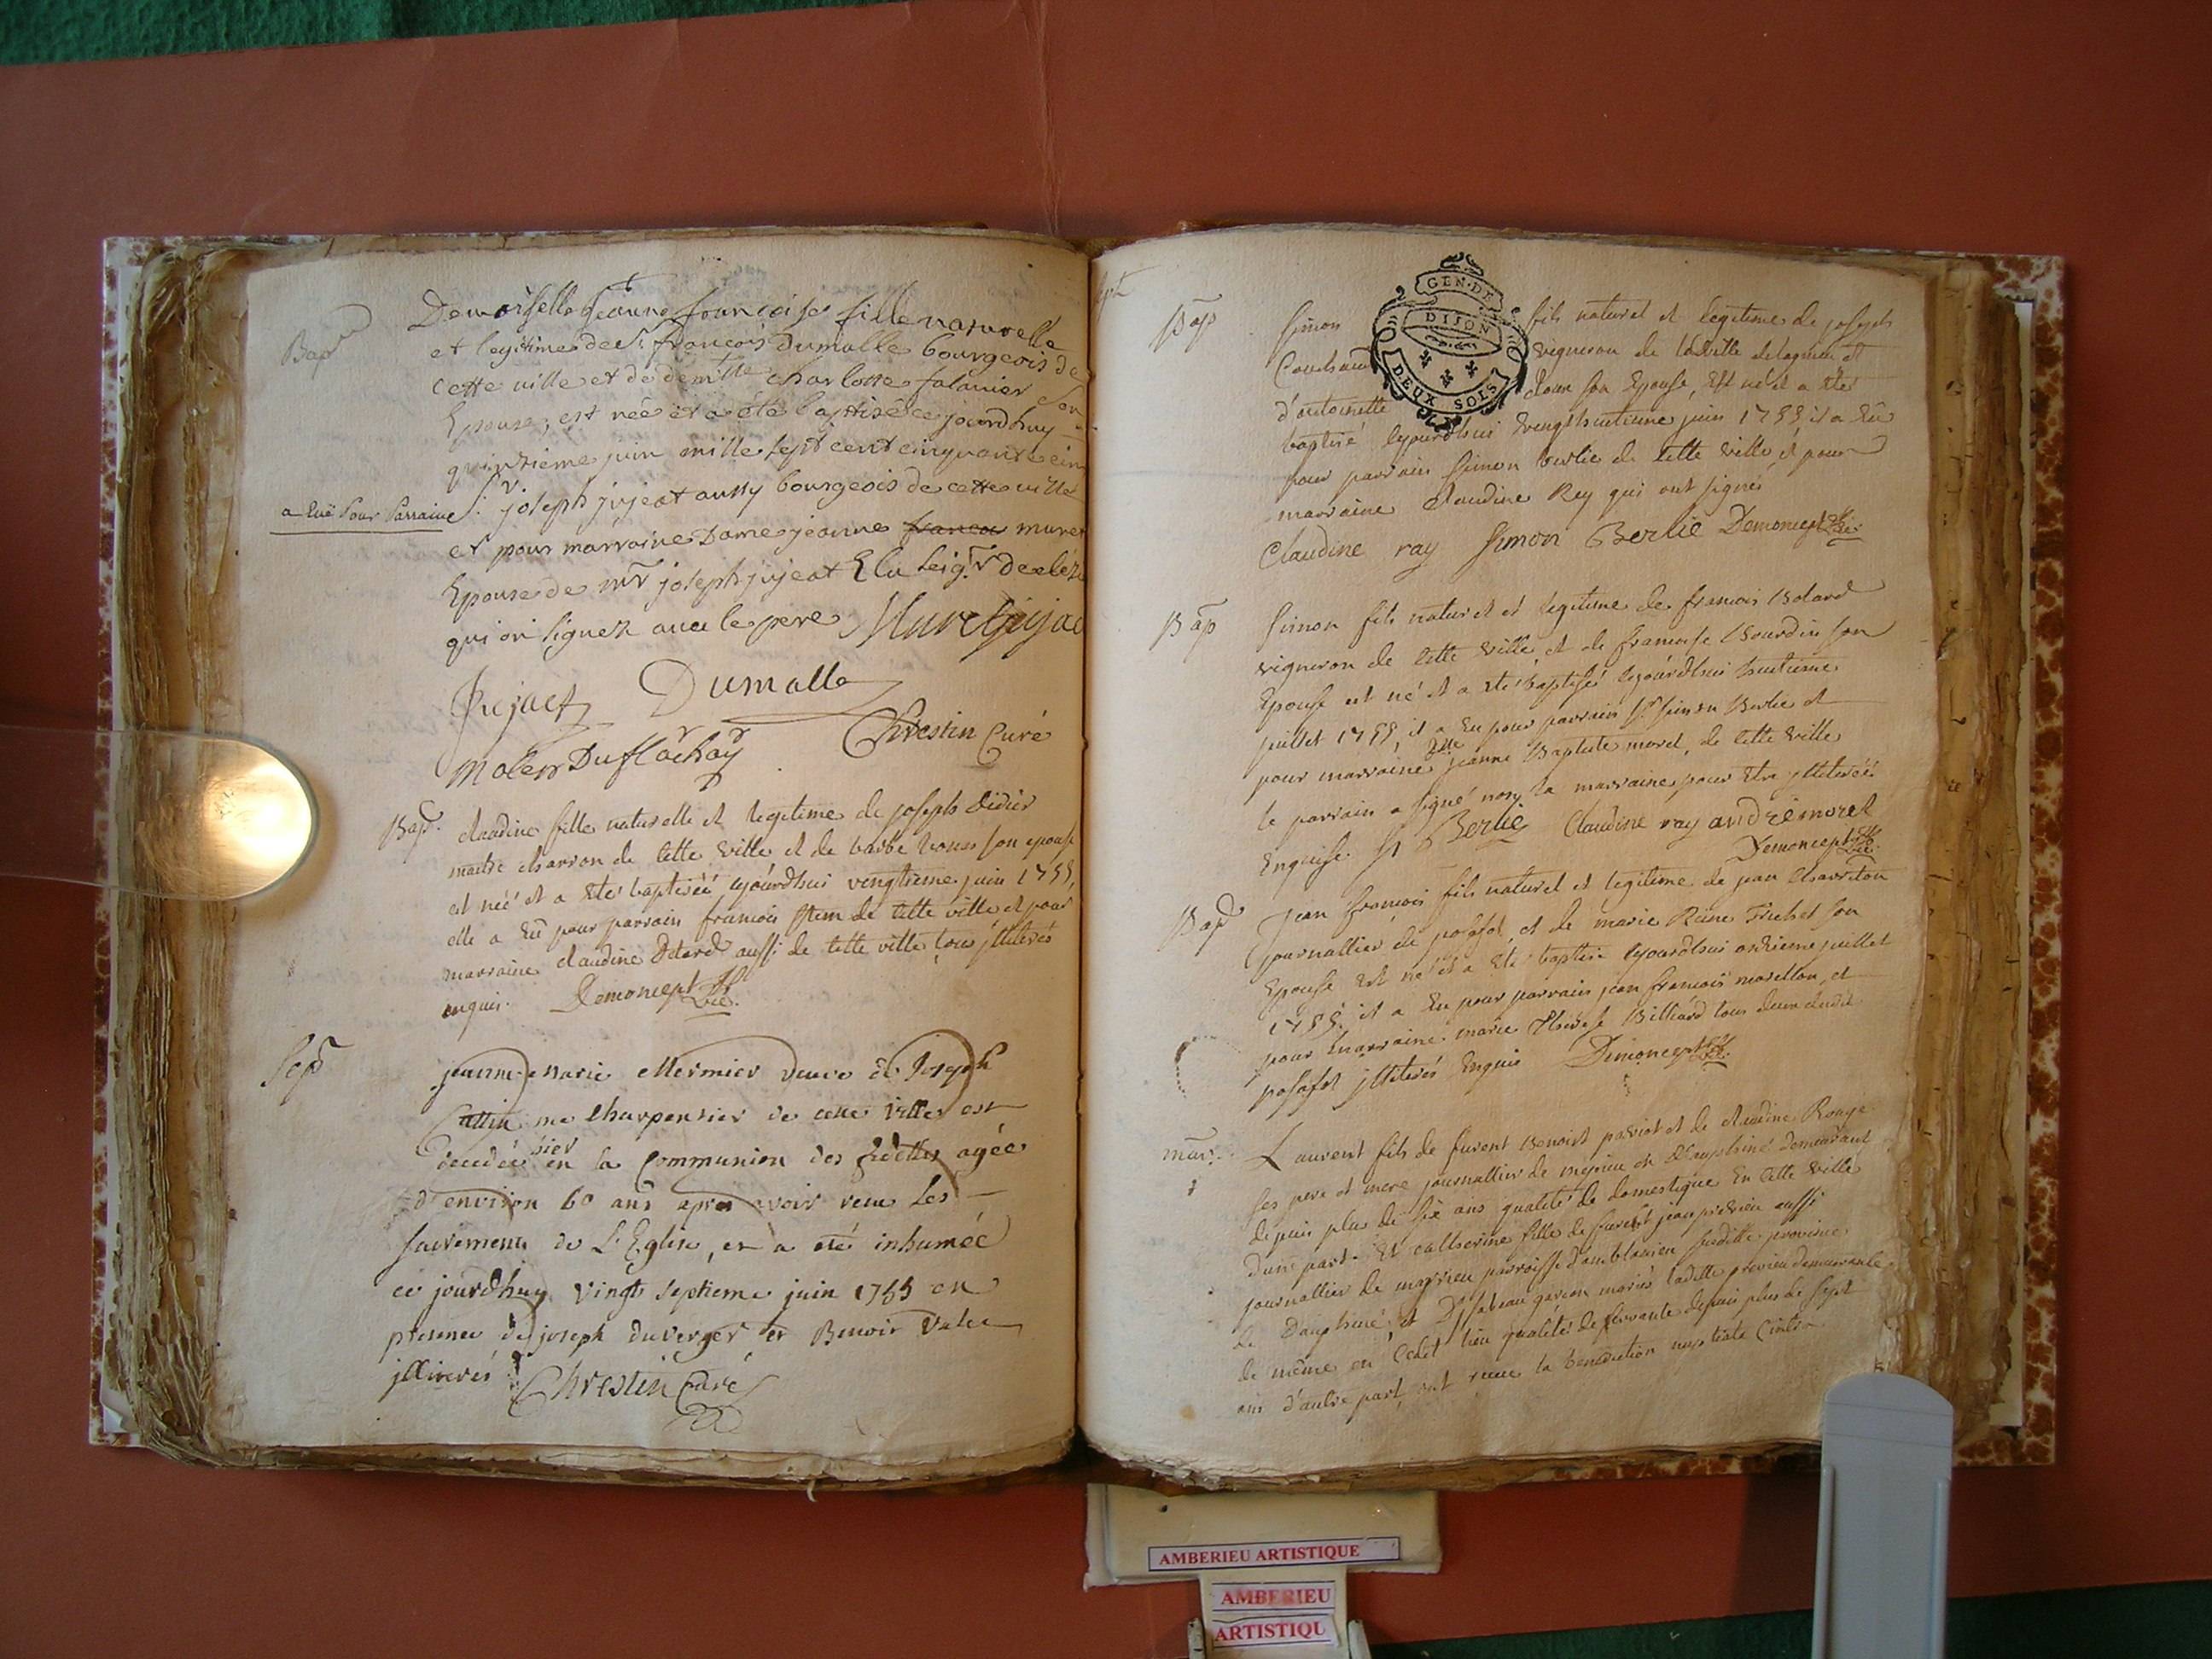 Bapt
Demoiselle jeanne francoise fille naturelle
et legitime de Sr francois Dumolle bourgeois de
cette ville et de demlle charlotte falavier son
Epouse, est née et a été baptisée ce jourdhuy
quinzieme juin mille sept cent cinquante cin
a Euë pour parraine Sr joseph jujeat aussy bourgeois de cette ville
et pour marraine Dame jeanne muret
Epouse de mr joseph jujeat Elu
qui on signez avec le pere
Jujact Dumolle
Chrestin Curé
Bapt. claudine fille naturelle et legitime de joseph didier
maitre charron de cette ville et de barbe son epouse
est née et a ete baptiseé cejourdhui vengtieme juin 1755,
elle a eu pour parrain francois de cette ville et pour
marraine claudine aussi de cette ville, tous jlliterés
enquis. Demoncept vic.
Sep
jeanne marie Mermier veuve de Joseph
me Charpentier de cette ville est
decedée hier en la Communion des fidelles agée
d'environ 60 ans apres avoir reçu Les
sacrements de L'Eglise, et a eté inhumée
ce jourdhuy vingt septieme juin 1755 en
presence de joseph duverger et Benoit
jlliterés Chrestin Curé
GEN·DE
DIJON
DEUX SOLS
Bap
Simon fils naturel et legitime de joseph
vigneron de la ville de lagnieu et
d'antoinette son Epouse, Est né et a ete
baptisé cejourdhui vengthuitieme juin 1755 il a Eu
pour parrain Simon berlie de cette ville et pour
marraine claudine Rey qui ont signés
Claudine ray Simon Berlie Demoncept vic.
Bap
Simon fils naturel et legitime de francois Bolard
vigneron de cette ville et de francoise Bourdin son
Epouse est né et a ete baptisé cejourdhui huitieme
juillet 1755, il a Eu pour parrain Sr simon Berlie et
pour marraine Dlle jeanne Baptiste morel, de cette ville
le parrain a signé non la marraine pour etre jlliterée
Enquise. Berlie Claudine ray andré morel
Demoncept vic.
Bap
jean francois fils naturel et legitime de jean Charreton
journallier de posafol et de marie Reine son
Epouse est né et a ete baptisé cejourdhui onzieme juillet
1755. il a Eu pour parrain jean francois et
pour marraine marie therese Billiard tous deux dudit
posafol jlliterés Enquis Demoncept vic.
mar.
Laurent fils de furent Benoist et de claudine Rouge
ses pere et mere journallier de mepieu en Dauphiné demeurant
depuis plus de six ans qualité de domestique en cette ville
d'une part. Et catherine fille de furent jean previeu aussi
journallier de parroisse d'amblanieu susditte province
de Dauphiné, et D'isabeau mariés ladite previeu demeurante
de même en cedit lieu qualités de servante depuis plus de sept
ans d'autre part, ont reçue la benediction nuptiale
AMBERIEU ARTISTIQUE
AMBERIEU
ARTISTIQU